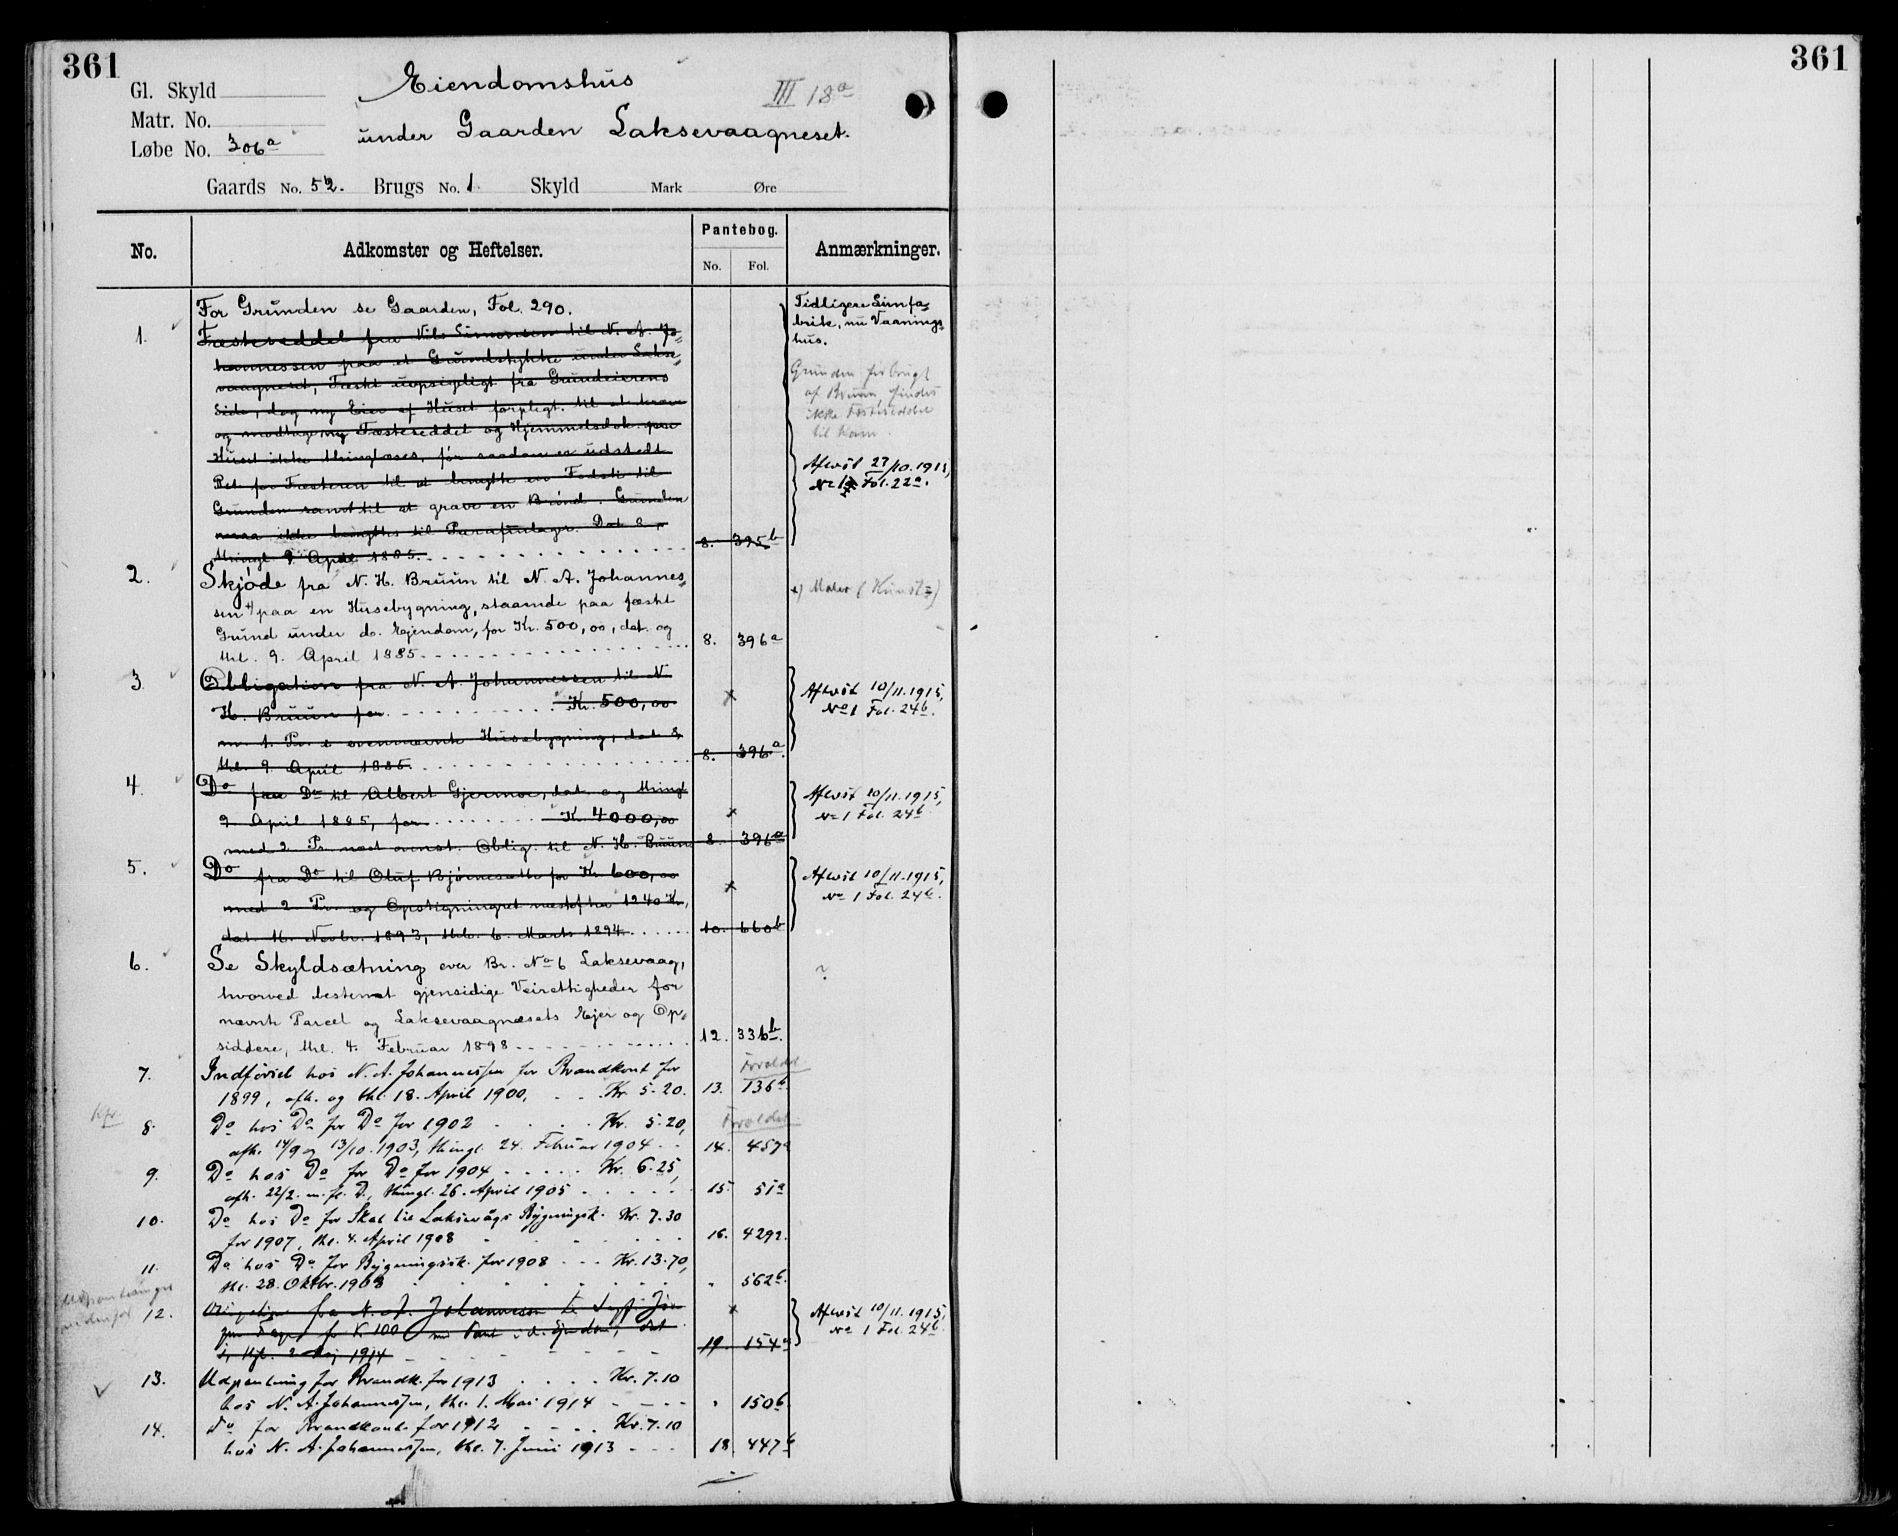 361
361
Gl. Skyld
Matr. No.
Løbe No. 306a
Eiendomshus
III 18a
under Gaarden Laksevaagneset.
Gaards No. 52. Brugs No. 1 Skyld Mark Øre
No. Adkomster og Heftelser. Pantebog. No. Fol. Anmærkninger.
For Grunden se Gaarden, Fol. 290.
Tidligere Limfa-
brik, nu Vaanings-
hus.
1. Fæsteseddel fra Nils Simonsen til N. A. Jo-
hannessen paa et Grundstykke under Lakse-
vaagneset, Fæstet uopsigeligt fra Grundeierens
Side, dog ny Eier af Huset forpligt. til at
og modtage ny Fæsteseddel og Hjemmelsdok.
Huset ikke thinglæses, før saadan er udstedt
Ret for Fæsteren til at benytte en Fodsti til
Grunden samt til at grave en Brønd. Grunden
maa ikke benyttes til Parafinlager. Dat. &
thingl. 9. April 1885. 8. 395b
Grunden forbrugt
af Bruun, findes
ikke Fæsteseddel
til ham.
Aflæst 27/10.1915,
No 1 Fol. 22a.
2. Skjøde fra N. H. Bruun til N. A. Johannes-
sen x) paa en Husebygning, staaende paa fæstet
Grund under do. Ejendom, for Kr. 500,00, dat. og
thl. 9. April 1885 8. 396a
x) Maler (Kunst=)
3. Obligation fra N. A. Johannessen til N.
H. Bruun for Kr. 500,00
m. 1. Pr. i ovennævnte Husebygning, dat. &
thl. 9. April 1885. 8. 396a.
x
Aflæst 10/11.1915,
No 1 Fol. 24b.
4. Do fra Do til Albert Gjermoe, dat. og thingl.
9 April 1885, for Kr. 4000,00
med 2 Pr. næst ovenst. Oblig. til N. H. Bruun 8 396a
x
Aflæst 10/11.1915,
No 1 Fol. 24b
5. Do fra Do til Oluf Bjørnesæth for Kr. 600,00
med 2 Pr. og Opstigningsret næstefter 1240 Kr,
dat. 16. Novbr. 1893, thl. 6. Marts 1894. 10. 660b
x
Aflæst 10/11.1915,
No 1 Fol. 24b.
6. Se Skyldsætning over Br. No 6 Laksevaag,
hvorved bestemt gjensidige Veirettigheder for
nævnte Parcel og Laksevaagnæsets Ejer og Op-
siddere, thl. 4. Februar 1898 12. 336b.
?
7. Indførsel hos N. A. Johannessen for Brandkont for
Forældet
1899, afh. og thl. 18. April 1900, Kr. 5-20. 13. 136b
8. Do hos Do for Do for 1902 Kr. 5-20,
Forældet
afh. 14/9 og 13/10.1903, thingl. 24. Februar 1904 14. 457a
9. Do hos Do for Do for 1904 Kr. 6-25,
afh. 22/2. m. fl. D., thingl. 26. April 1905 15. 51a
10. Do hos Do for Skat til Laksevågs Bygningsk. Kr. 7.30
for 1907, thl. 4. April 1908 16. 4292.
11. Do hos Do for Bygningsk. for 1908 Kr. 13.70,
thl. 28. Oktbr. 1908 " 562b.
12. Obligation fra N. A. Johannessen til
for K 100 med Pant i d. Ejendom, dat.
tgl. 2 Maj 1914 19 154a
x
Aflæst 10/11.1915,
No 1 Fol. 24b
13. Udpantning for Brandk. for 1913 Kr. 7.10
hos N. A. Johannessen, thl. 1. Mai 1914 " 150b
14. Do for Brandkont. for 1912 Kr. 7.10
hos N. A. Johannessen, thl. 7. Juni 1913 18. 447b